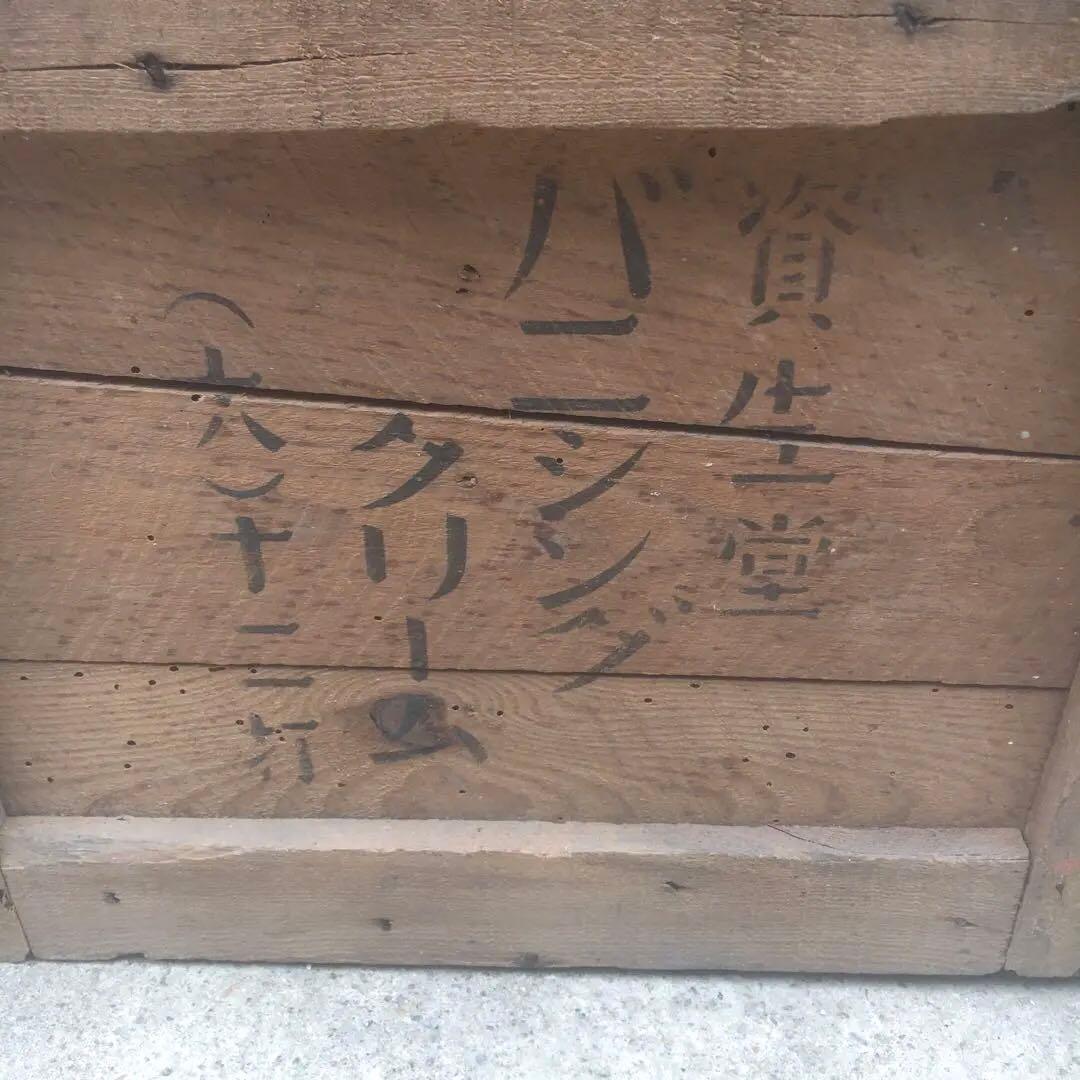 資生堂
バニシング
クリーム
（大）十二打